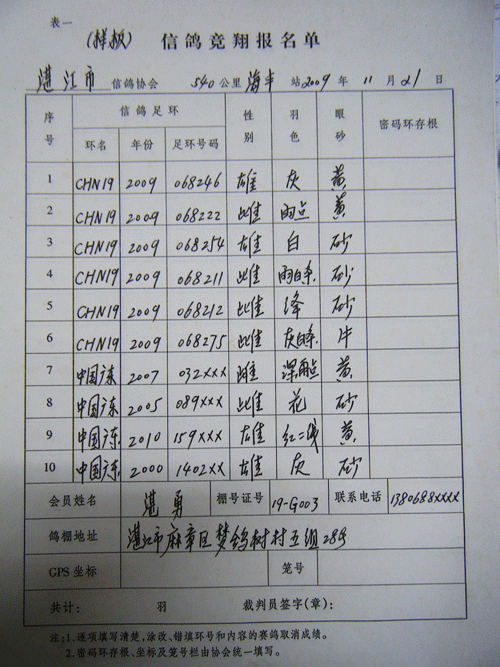 表一
(样板) 信鸽竞翔报名单
湛江市 信鸽协会 540 公里 海丰 站 2009 年 11 月 21 日
序号 信鸽足环 性别 羽色 眼砂 密码环存根
环名 年份 足环号码
1 CHN19 2009 068246 雄 灰 黄
2 CHN19 2009 068222 雌 雨点 黄
3 CHN19 2009 068254 雄 白 砂
4 CHN19 2009 068211 雌 雨白条 砂
5 CHN19 2009 068212 雌 绛 砂
6 CHN19 2009 068275 雌 灰白条 牛
7 中国广东 2007 032XXX 雌 深雨点 黄
8 中国广东 2005 089XXX 雌 花 砂
9 中国广东 2010 159XXX 雄 红二线 黄
10 中国广东 2000 1402XX 雄 灰 砂
会员姓名 湛勇 棚号证号 19-G003 联系电话 1380688XXXX
鸽棚地址 湛江市麻章区梦鸽树村五组28号
GPS 坐标 笼号
共计: 羽 裁判员签字(章):
注:1.逐项填写清楚,涂改、错填环号和内容的赛鸽取消成绩。
2.密码环存根、坐标及笼号栏由协会统一填写。